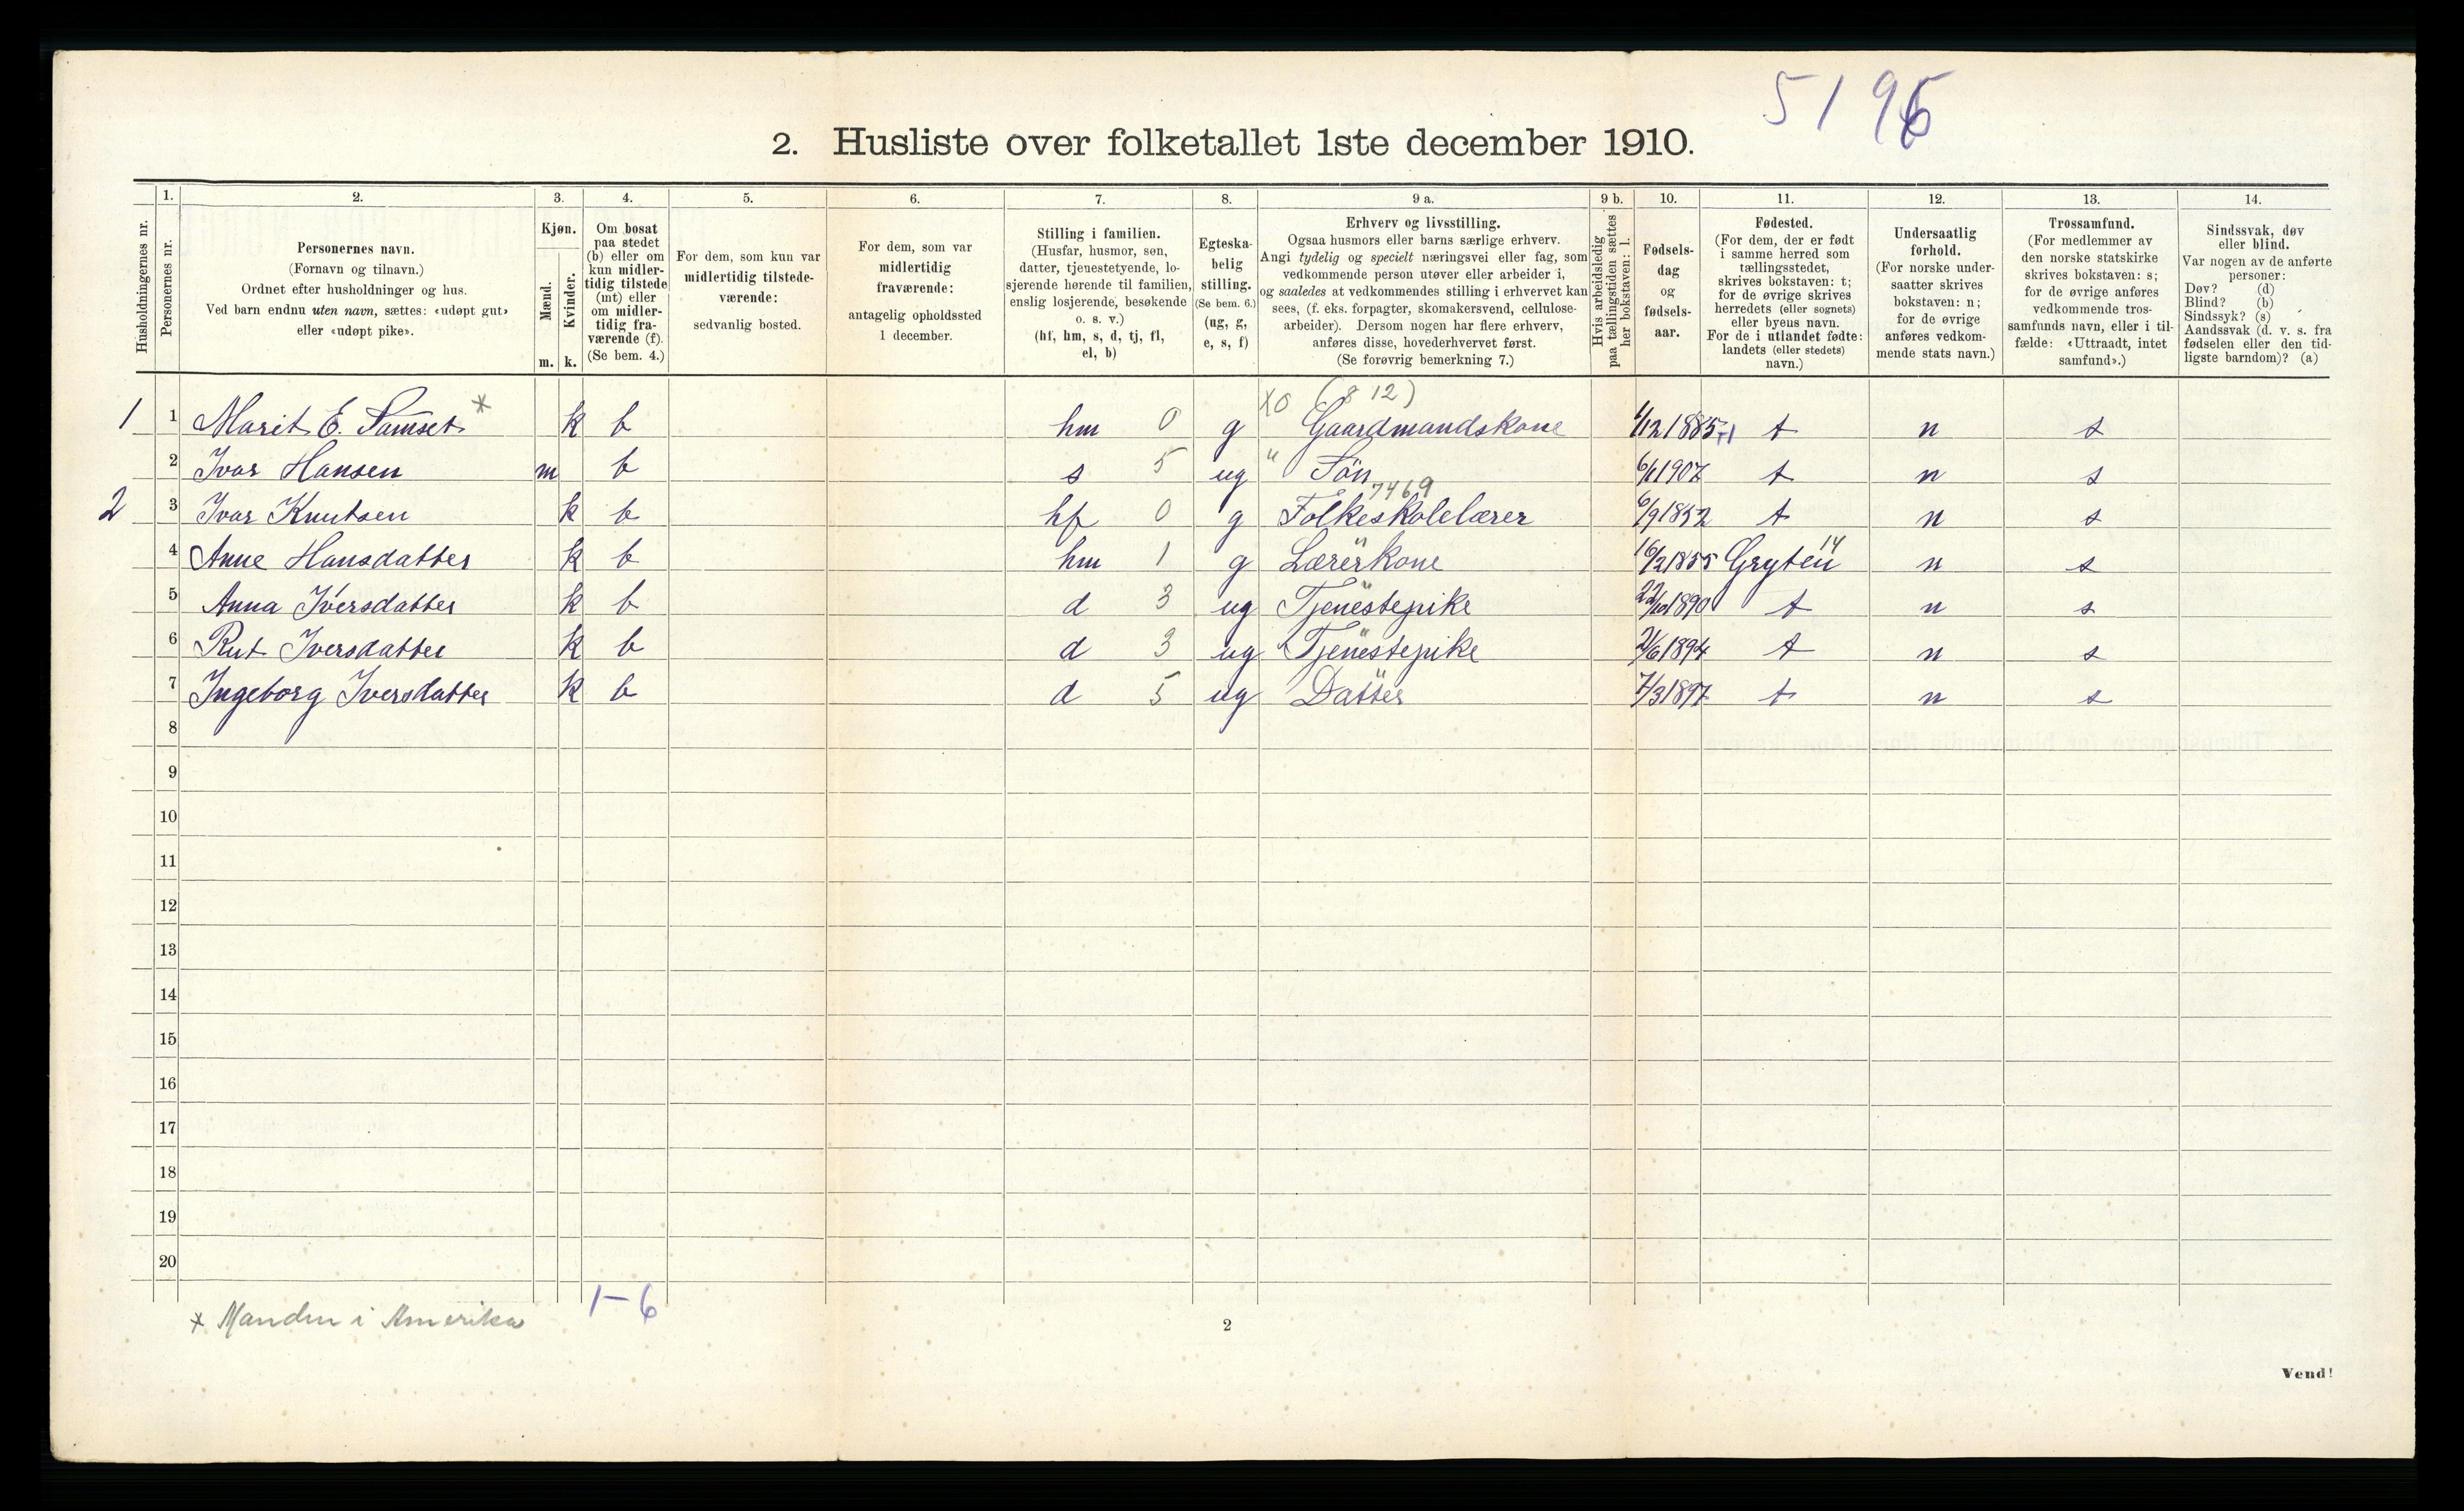 5196
2. Husliste over folketallet 1ste december 1910.
Husholdningernes nr.
1. Personernes nr.
2. Personernes navn. (Fornavn og tilnavn.) Ordnet efter husholdninger og hus. Ved barn endnu uten navn, sættes: «udøpt gut» eller «udøpt pike».
3. Kjøn. Mænd. m. Kvinder. k.
4. Om bosat paa stedet (b) eller om kun midlertidig tilstede (mt) eller om midlertidig fraværende (f). (Se bem. 4.)
5. For dem, som kun var midlertidig tilstedeværende: sedvanlig bosted.
6. For dem, som var midlertidig fraværende: antagelig opholdssted 1 december.
7. Stilling i familien. (Husfar, husmor, søn, datter, tjenestetyende, losjerende hørende til familien, enslig losjerende, besøkende o. s. v.) (hf, hm, s, d, tj, fl, el, b)
8. Egteskabelig stilling. (Se bem. 6.) (ug, g, e, s, f)
9 a. Erhverv og livsstilling. Ogsaa husmors eller barns særlige erhverv. Angi tydelig og specielt næringsvei eller fag, som vedkommende person utøver eller arbeider i, og saaledes at vedkommendes stilling i erhvervet kan sees, (f. eks. forpagter, skomakersvend, cellulosearbeider). Dersom nogen har flere erhverv, anføres disse, hovederhvervet først. (Se forøvrig bemerkning 7.)
9 b. Hvis arbeidsledig paa tællingstiden sættes her bokstaven: l.
10. Fødselsdag og fødselsaar.
11. Fødested. (For dem, der er født i samme herred som tællingsstedet, skrives bokstaven: t; for de øvrige skrives herredets (eller sognets) eller byens navn. For de i utlandet fødte: landets (eller stedets) navn.)
12. Undersaatlig forhold. (For norske undersaatter skrives bokstaven: n; for de øvrige anføres vedkommende stats navn.)
13. Trossamfund. (For medlemmer av den norske statskirke skrives bokstaven: s; for de øvrige anføres vedkommende trossamfunds navn, eller i tilfælde: «Uttraadt, intet samfund».)
14. Sindssvak, døv eller blind. Var nogen av de anførte personer: Døv? (d) Blind? (b) Sindssyk? (s) Aandssvak (d. v. s. fra fødselen eller den tidligste barndom)? (a)
X0 (812)
1 1 Marit E. Samset * k b hm 0 g Gaardmandskone 1/12 1885 t n s
2 Ivar Hansen m b s 5 ug " Søn 6/1 1907 t n s
7469
2 3 Ivar Knutsen k b hf 0 g Folkeskolelærer 6/9 1852 t n s
4 Anne Hansdatter k b hm 1 g Lærerkone " 16/2 1855 Grytten 14 n s
5 Anna Iversdatter k b d 3 ug Tjenestepike " 22/10 1890 t n s
6 Rut Iversdatter k b d 3 ug Tjenestepike " 21/6 1894 t n s
7 Ingeborg Iversdatter k b d 5 ug Datter " 7/3 1897 t n s
8
9
10
11
12
13
14
15
16
17
18
19
20
1-6
* Manden i Amerika
2
Vend!